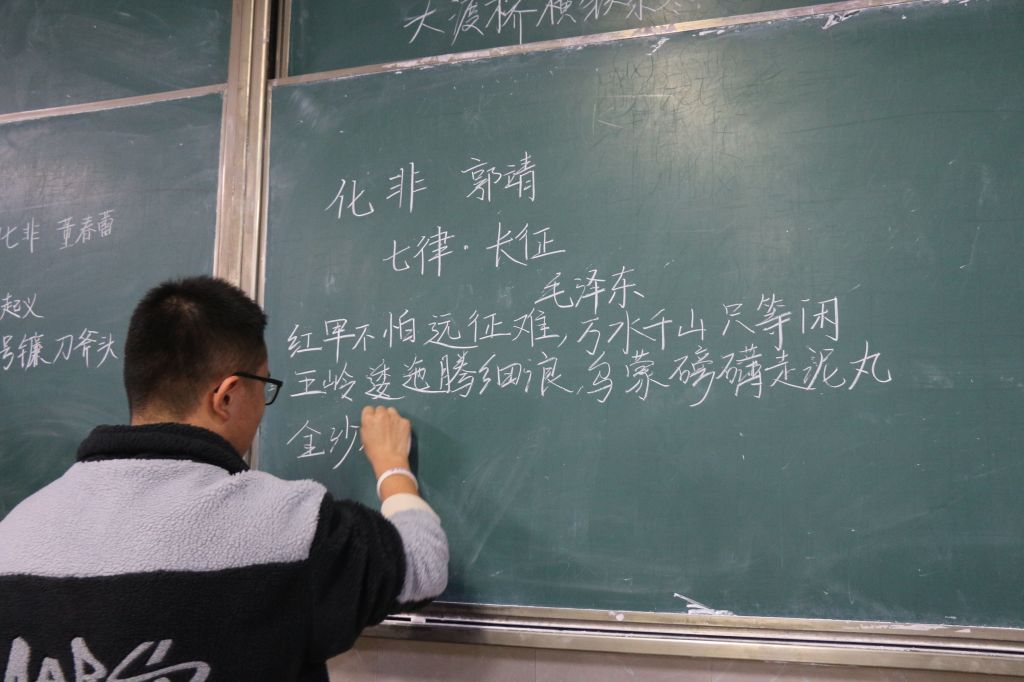 大渡桥横铁索寒
化非 董春蕾
起义
号镰刀斧头
化非 郭靖
七律·长征
毛泽东
红军不怕远征难,万水千山只等闲
五岭逶迤腾细浪,乌蒙磅礴走泥丸
金沙